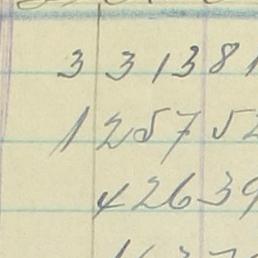 3 3 1 3 8 1
1 2 5 7 5 2
4 2 6 3 9